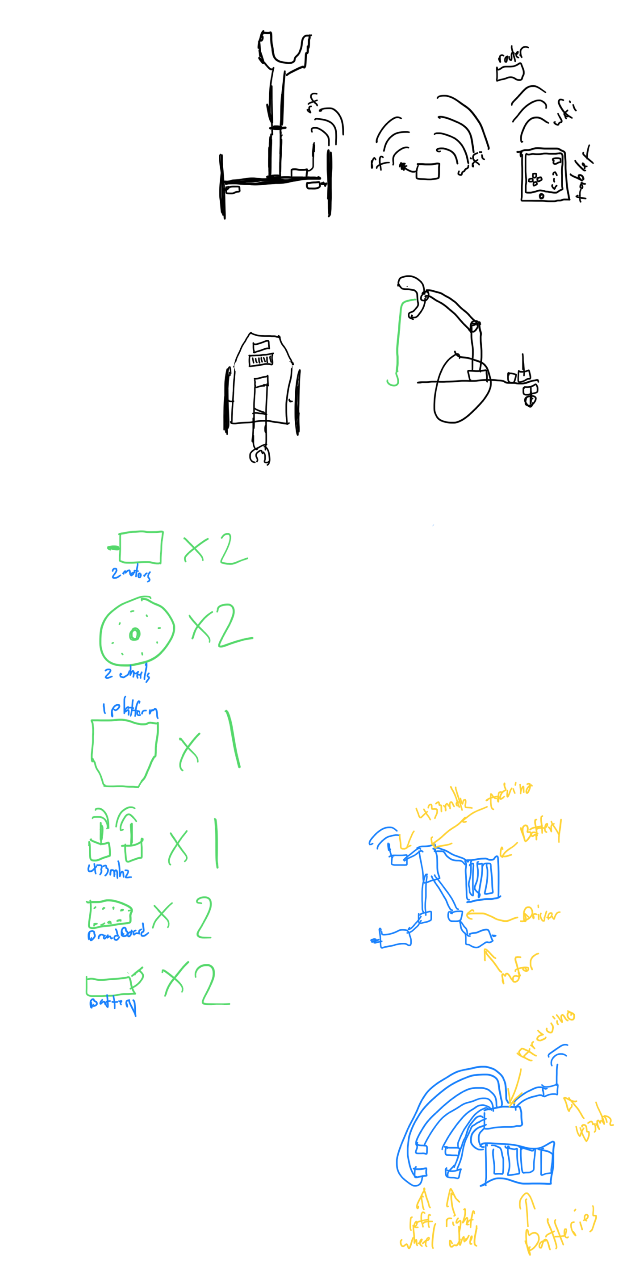 router
rf
wifi
rf
wifi
tablet
x2
2 motors
x2
2 wheels
1 platform
x 1
x 1
433mhz
x 2
BreadBoard
x2
Battery
433mhz
Arduino
Battery
Driver
motor
Arduino
433mhz
left wheel
right wheel
Batteries